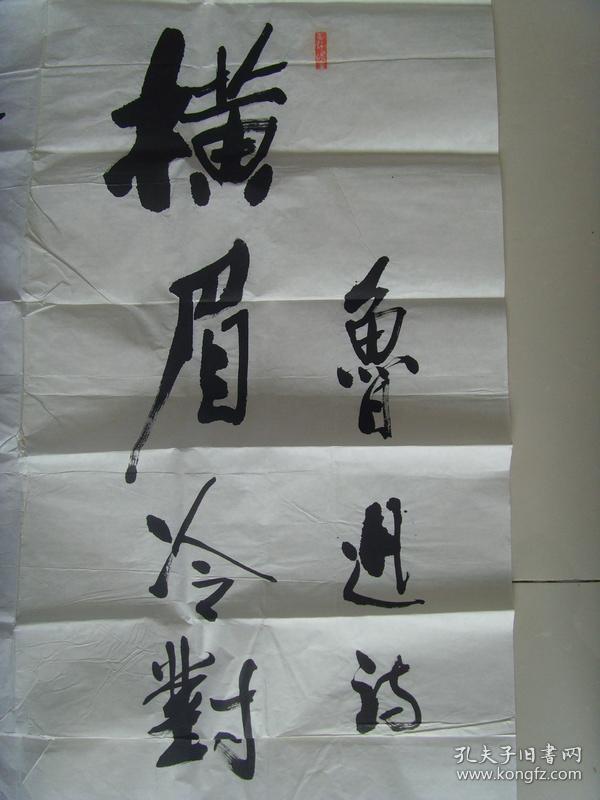 魯迅詩
橫眉冷對
孔夫子旧書网
www.kongfz.com